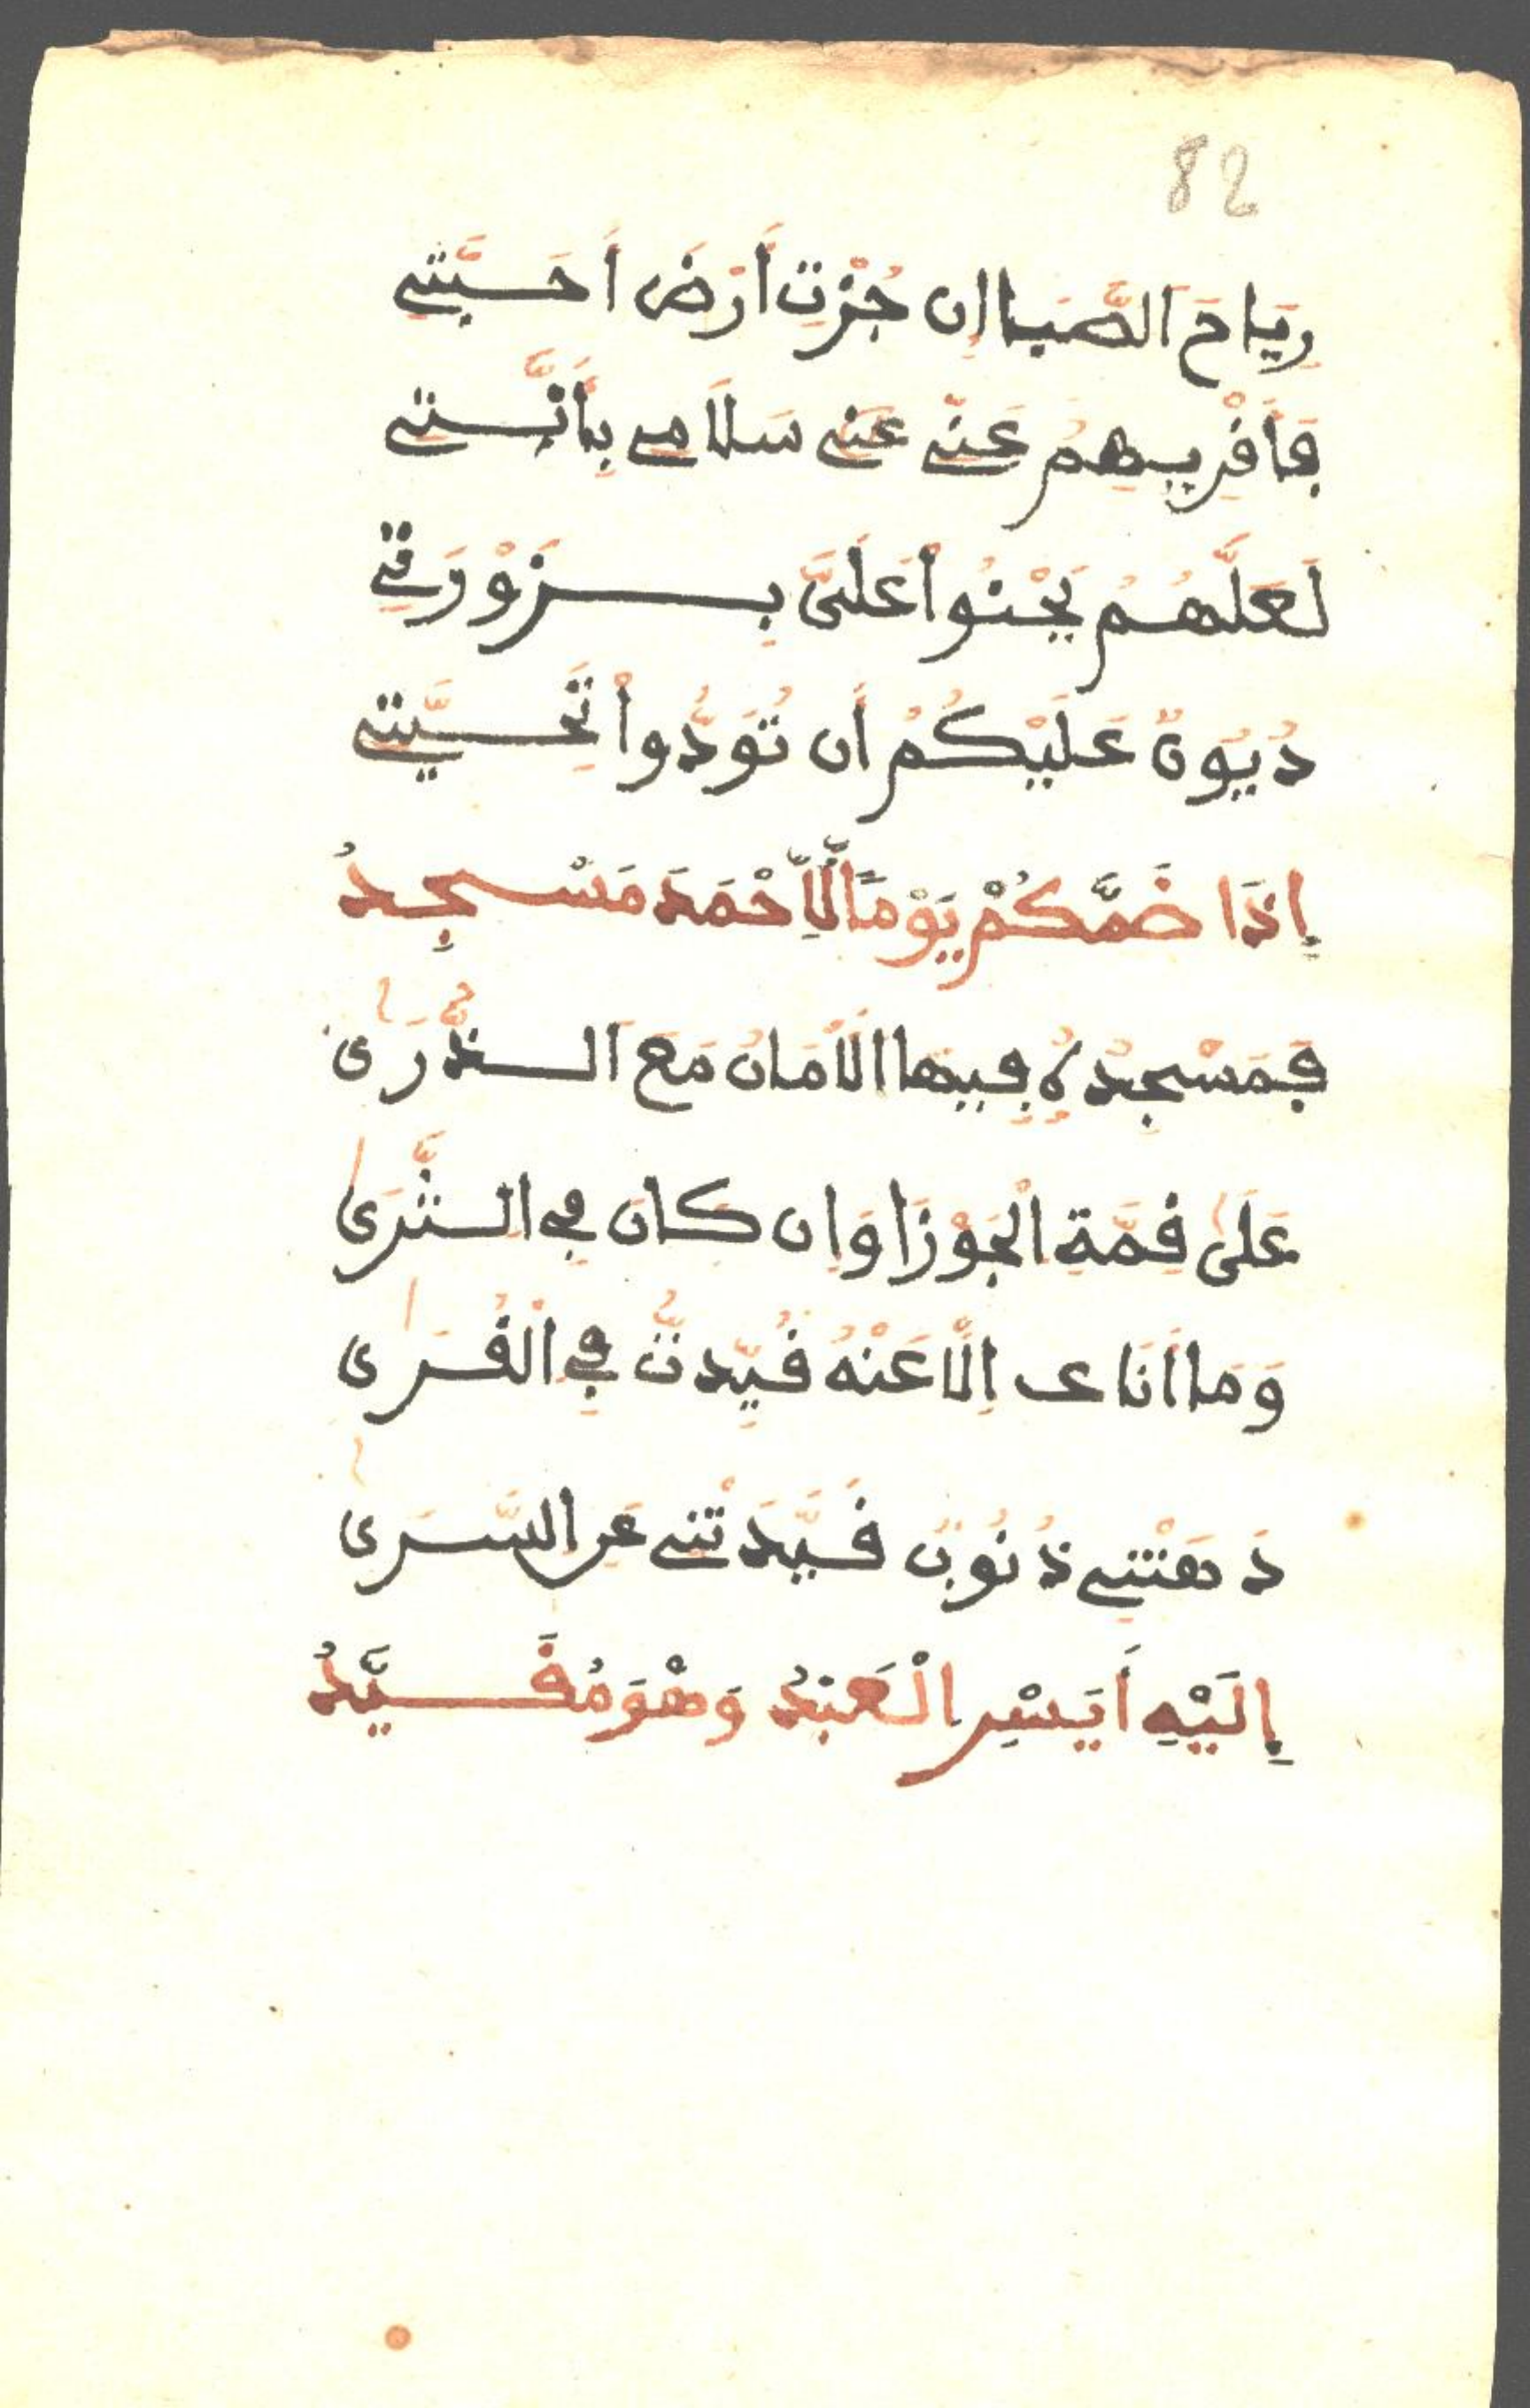 82
رِيَاحَ الصَّبَا إِن جُزْتِ أَرْضَ أَحِبَّتِي
فَأَقْرِيهِمُ عَنِّي عَنِي سَلَامِي بِأَنَّتِي
لَعَلَّهُمُ يَحْنُواْ عَلَىَّ بِزَوْرَتِي
دُيُونٌ عَلَيْكُمُ أَن تُوَدُّواْ تَحِيَّتِي
إِذَا ضَمَّكُمْ يَوْمًا لِّأَحْمَدَ مَسْجِدُ
فَمَسْجِدُهُ فِيهَا الْأَمَانُ مَعَ الذُّرَى
عَلَى قِمَّةِ الْجَوْزَا وَإِن كَانَ فِي الثَّرَى
وَمَا أَنَا إِلَّا عَنْهُ قُيِّدتُّ فِي الْقُرَى
دَهَتْنِي ذُنُوبٌ قَيَّدَتْنِي عَنِ السَّرَى
إِلَيْهِ أَيَسْرِ الْعَبْدُ وَهْوَ مُقَيَّدُ